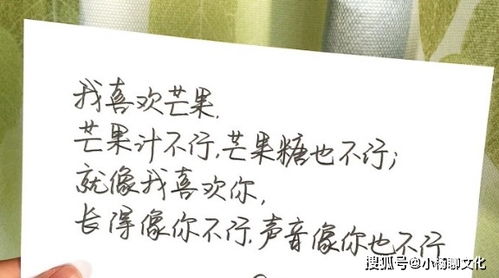 我喜欢芒果,
芒果汁不行,芒果糖也不行;
就像我喜欢你,
长得像你不行,声音像你也不行
搜狐号@小杨聊文化